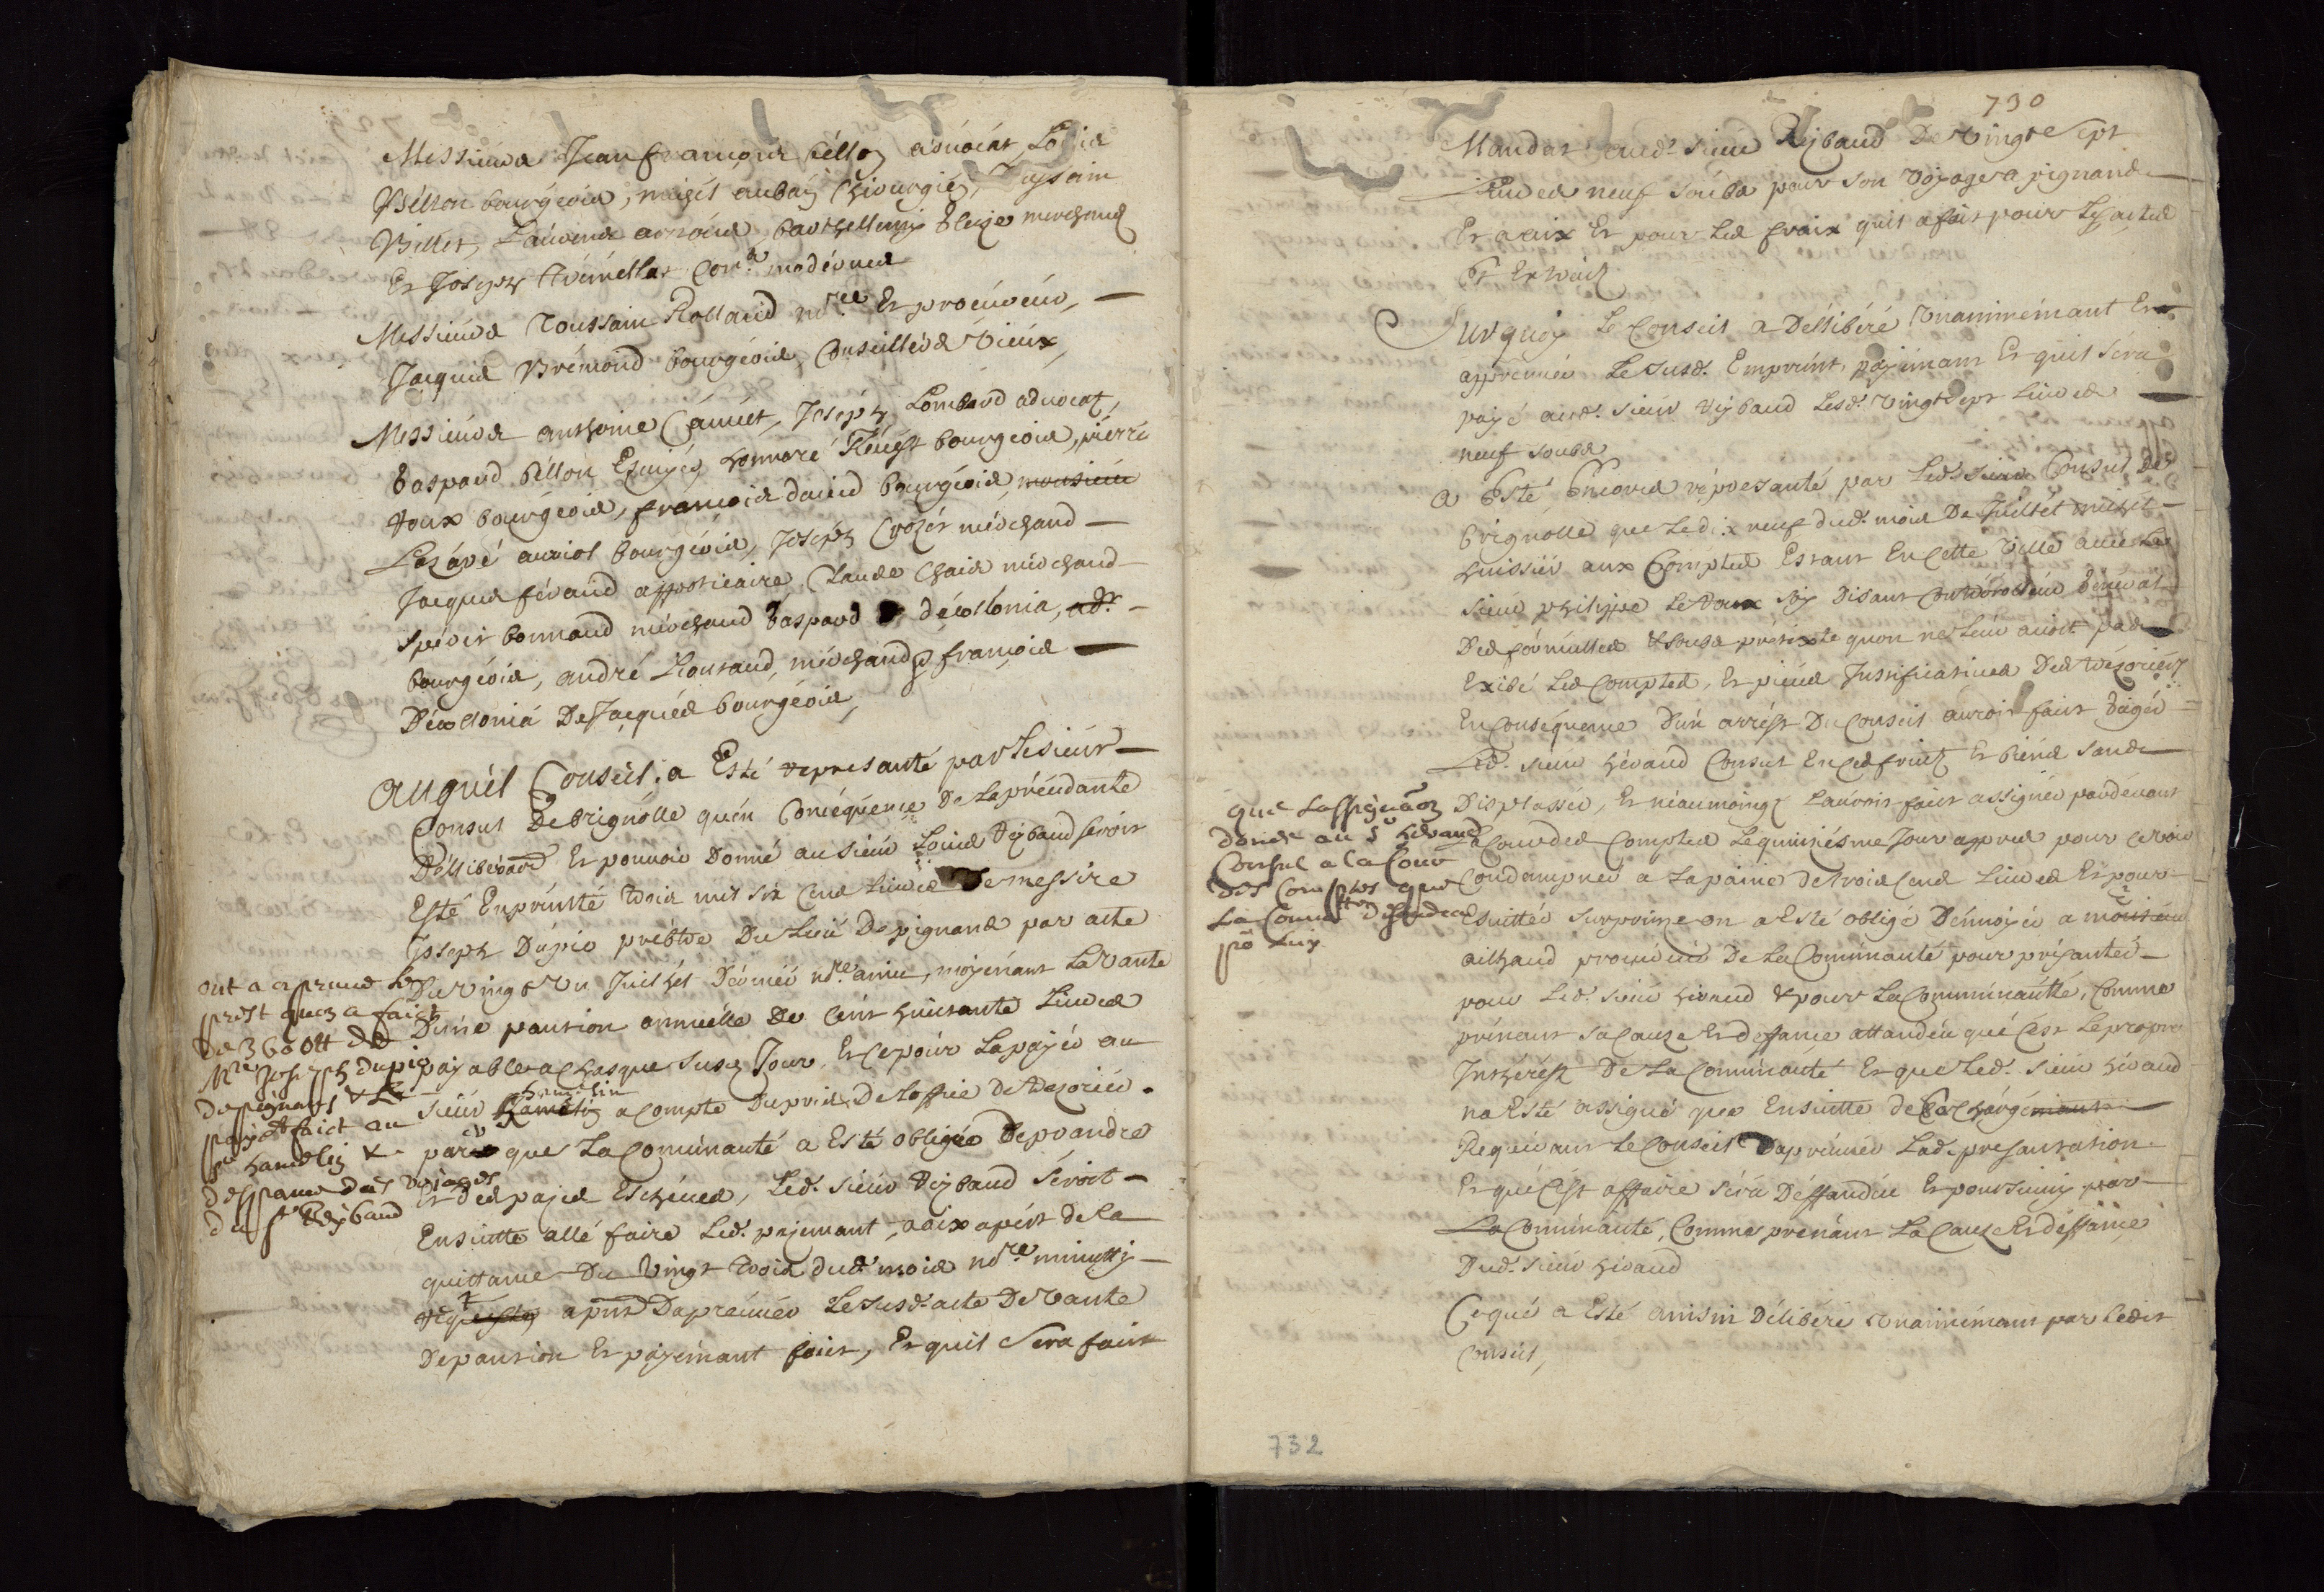 Messieurs Jean françois bellon advocat, Louis
Bellon bourgeois, michel auban Chirurgien, Jossain
Billet, Laurens arnoux, barthellemy bleize marchand
Et Joseph tremellat Con.rs modernes
Messieurs Toussain Rolland nore Et procureur, —
Jacques Brémond bourgeois, Conseillers vieux,
Messieurs anthoine Canuet, Joseph Lombard advocat,
Gaspard bellon Escuyer, honnoré bourgeois, pierre
Roux bourgeois, françois david bourgeois, monsieur
Lazare auriol bourgeois, Joseph Crozet marchand —
Jacques féraud appoticaire, Claude Chaix marchand —
bonnaud marchand Gaspard décollonia, adt —
bourgeois, andré marchand françois —
Décollonia De Jacques bourgeois,
Auquel Conseil, a Esté represanté par le sieur —
Consul De brignolle quen Conséquence De la précédante
Délliberaõn Et pouvoir Donné au sieur Louis Reybaud seroit
Esté Enprunté trois mil six Cens Livres De messire
Joseph Dupic prebtre Du Lieu De pignans par acte
Du vingt un Juillet Dernier nore amic, moyenant La vante
D'une pantion annuelle De Cent huitante Livres
payable a Chasque susd. Jour, Et ce pour La payer au
sieur Ramelin hamelin a Compte Du prix De Loffice De trezorier
que La Comunauté a Esté obligée De prandre
Et Des payes Eschéues, Led. sieur Reybaud seroit —
Ensuitte allé faire Led. payemant, a aix apert de la
quittance Du vingt trois dud. mois nore minutty —
apres D'apreuver Le susd. acte De vante
De pantion Et payemant fait, Et quil sera fait
ont a appreuvé Le
prest quon a faict
de 3600 tt de
Mre Joseph dupic
de pignans & Le
payet faict au
sr hamelin &
despance des voiages
du sr Reybaud
730
Mandat aud. sieur Reybaud De vingt sept
Livres neuf soubz pour son voyage a pignans —
Et a aix Et pour Les fraix quil a fait pour Les actes
Et Extraitz
Sur quoy Le Conseil a Delliberé Unanimemant Et a
appreuvé Le susd. Emprunt, payemant Et quil sera
payé aud. sieur Reybaud Lesd. vingt sept Livres —
neuf soubz
A Esté Encores represanté par Led. sieur Consul De
brignolle que Le dix neuf dud. mois De Juillet michel —
huissier aux Comptes Estant En Cette ville avec Le
sieur philippe Ledoux soy Disant Controrolleur Géneral
Des formulles & soubz pretexte quon ne Leur avoit pas
Exibé Les Comptes, Et pieces Justificatives Des trézoriers
En Conséquence D'un arrest Du Conseil auroit fait Gager
Led. sieur héraud Consul En ses fruitz Et biens sans
Displasser, Et neaumoingz L'auroit fait assigner pardevant
La Cour des Comptes Le quinziesme Jour appres pour se voir
Condempner a La paine de trois Cens Livres Et pour —
Esuitter surprinse on a Esté obligé D'envoyer a monsieur
ailhaud procureur De La Comunauté pour présanter —
pour Led. sieur héraud & pour La Communautté, Comme
prénant sa Cauze Et deffance attandeu que Cest Le propre
Intherest De La Comunauté Et que Led. sieur héraud
na Esté assigné que Ensuitte de
Requerant Le Conseil D'apreuver Lad. presantation
Et que Cest affaire sera Deffandue Et poursuivy par —
La Comunauté, Comme prenant La Cauze Et déffance
Dud. sieur héraud
Ce que a Esté ainsin Déliberé Unanimemant par Ledit
Conseil,
Que Lassignaõn
donée au sr héraud
Consul a la Cour
des Comptes que
La Commtté deffandra
po Luy
732